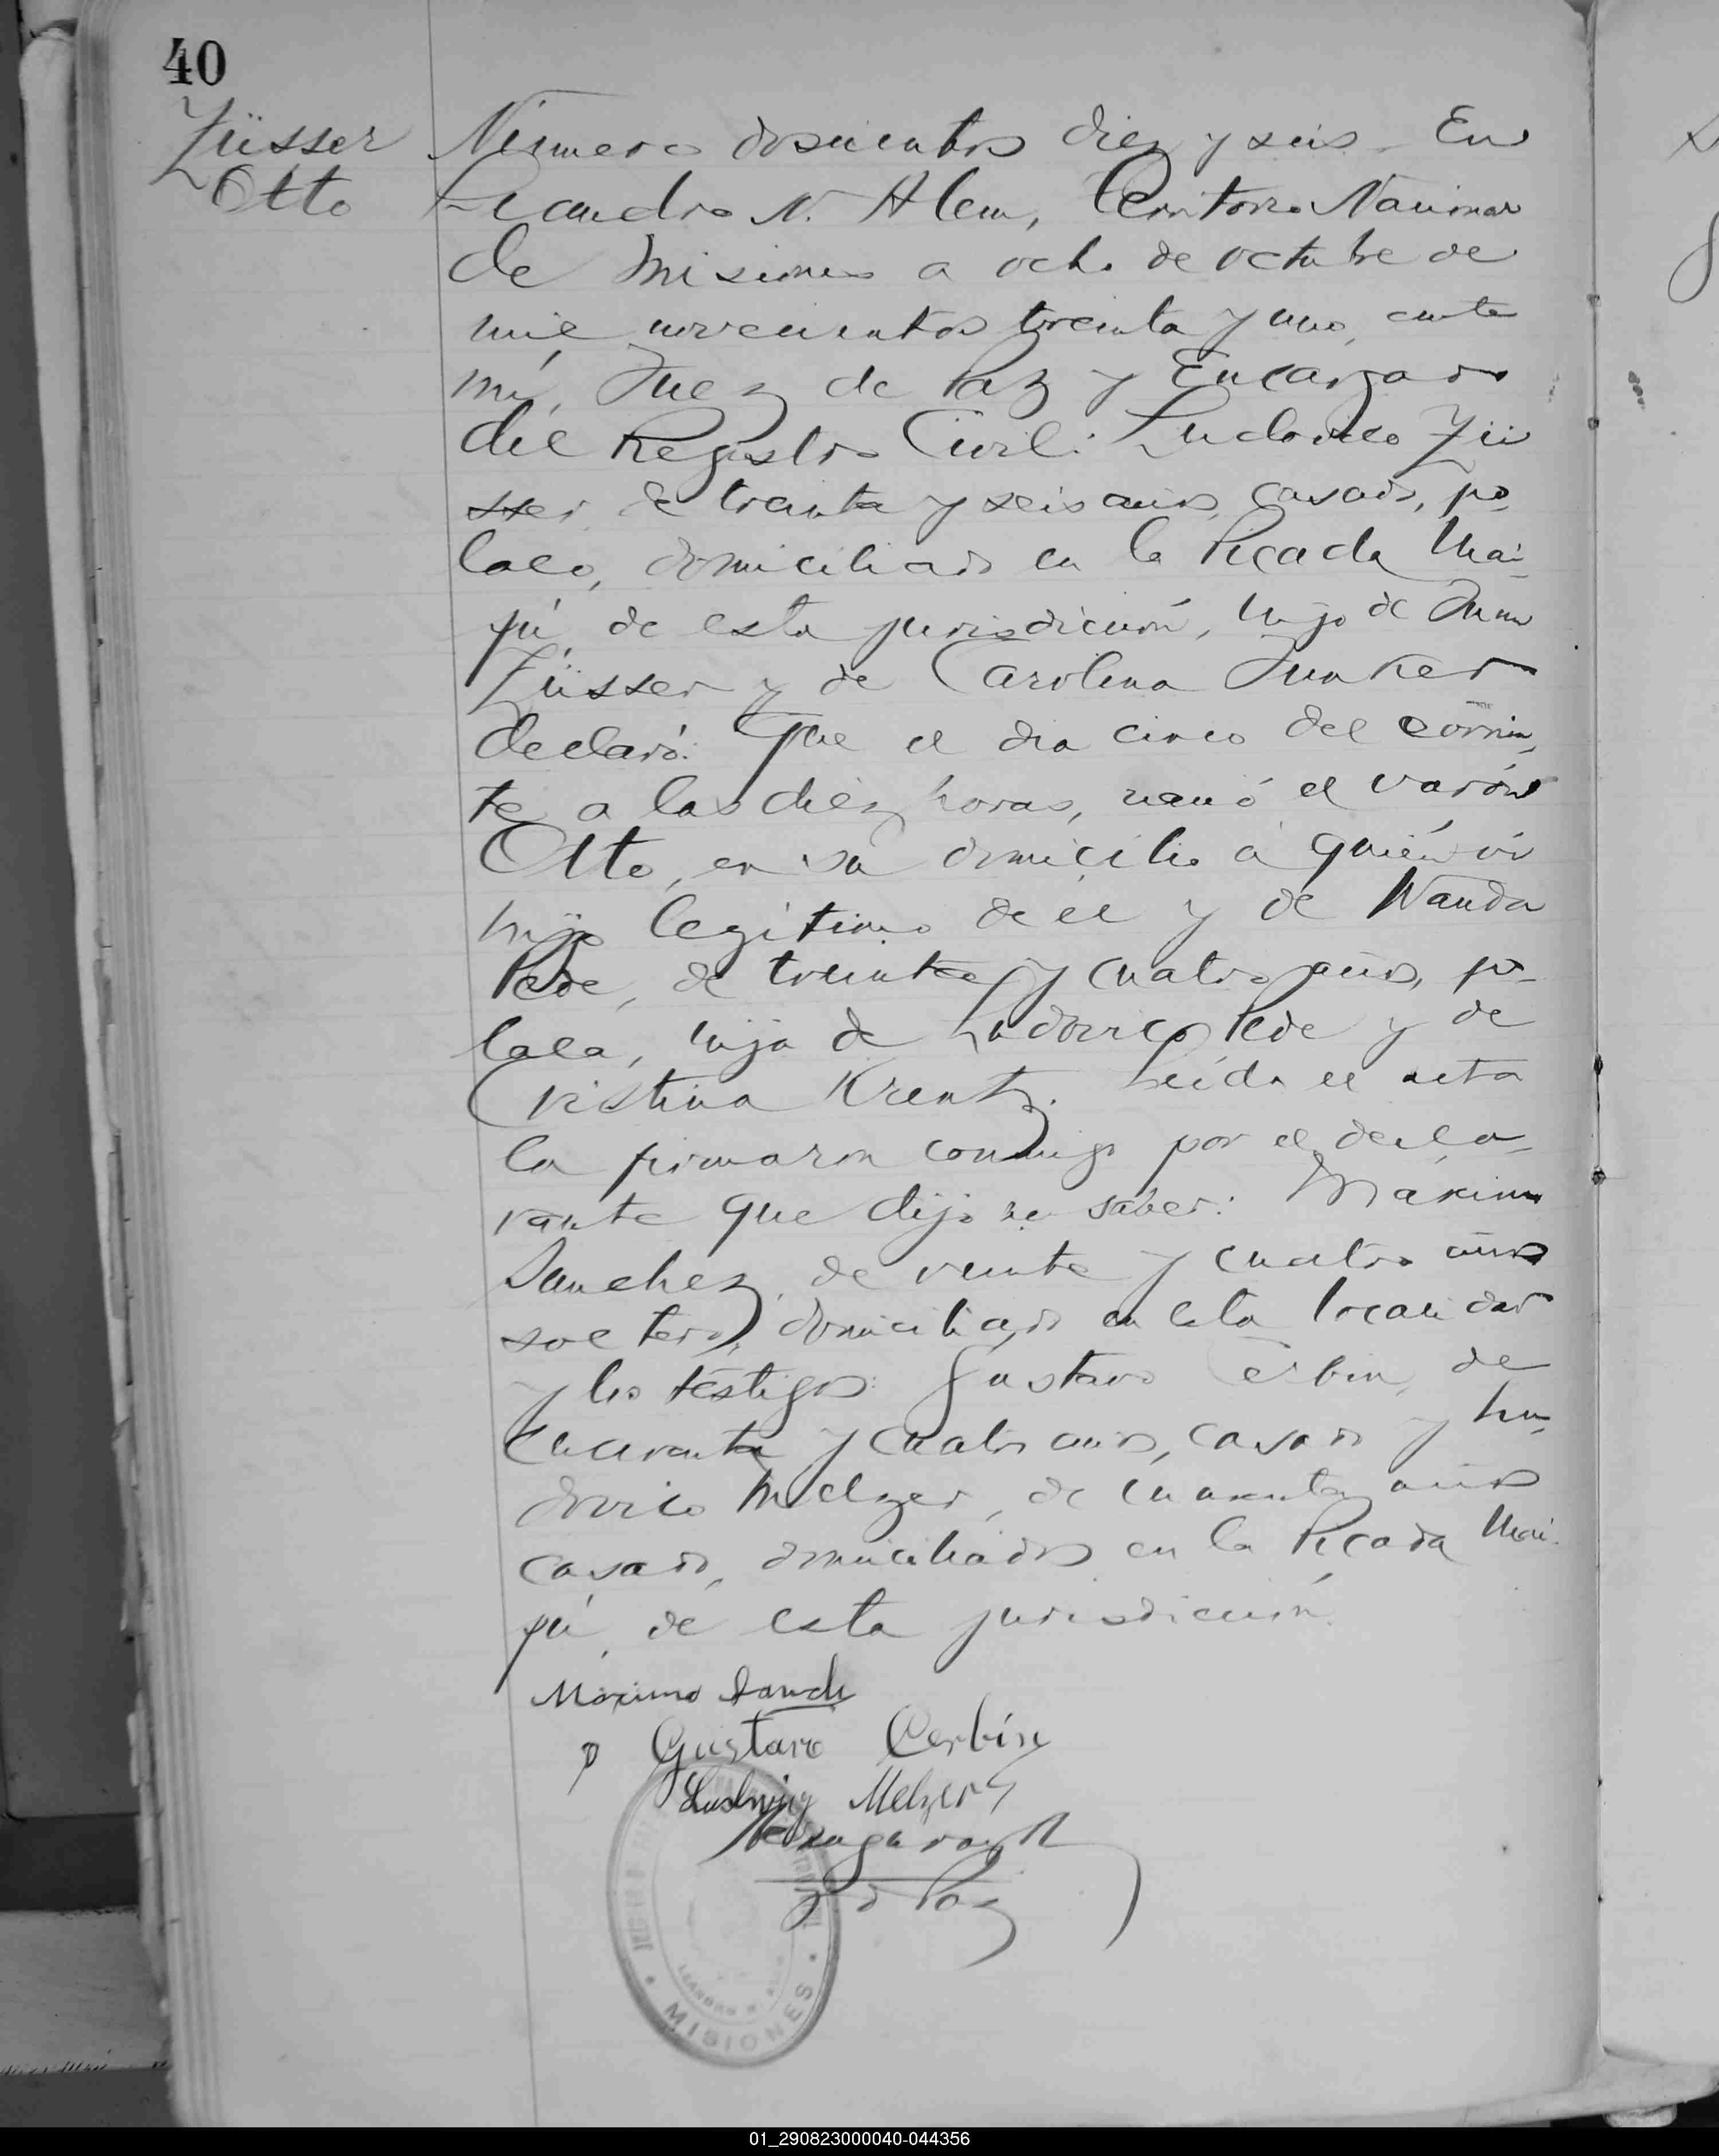 40
Züsser
Otto
Número doscientos diez y seis. En
Leandro N. Alem, Territorio Nacional
de Misiones a ocho de octubre de
mil novecientos treinta y uno, ante
mí, Juez de Paz y Encargado
del Registro Civil: Ludovico Zü
sser, de treinta y seis años, casado, po-
laco, domiciliado en la Picada Mai-
pú, de esta jurisdicción, hijo de Juan
Züsser y de Carolina Junker
declaró: Que el dia cinco del corrien-
te, a las diez horas, nació el varón
Otto, en su domicilio a quién vi
hijo legítimo de el y de Wanda
Pede, de treinta y cuatro años, po-
laca, hija de Ludovico Pede y de
Cristina Krentz. Leída el acta
la firmaron conmigo por el decla-
rante que dijo no saber: Maximo
Sanchez, de veinte y cuatro años
soltero, domiciliado en esta localidad
y los testigos: Gustavo Cerbin, de
cuarenta y cuatro años, casado y Lu-
dovico Melzer, de cuarenta años
casado, domiciliados en la Picada Mai-
pú, de esta jurisdicción.
Máximo Sanch
Gustavo Cerbin
Ludwig Melzer
J de Paz
LEANDRO N. ALEM
MISIONES
01_290823000040-044356